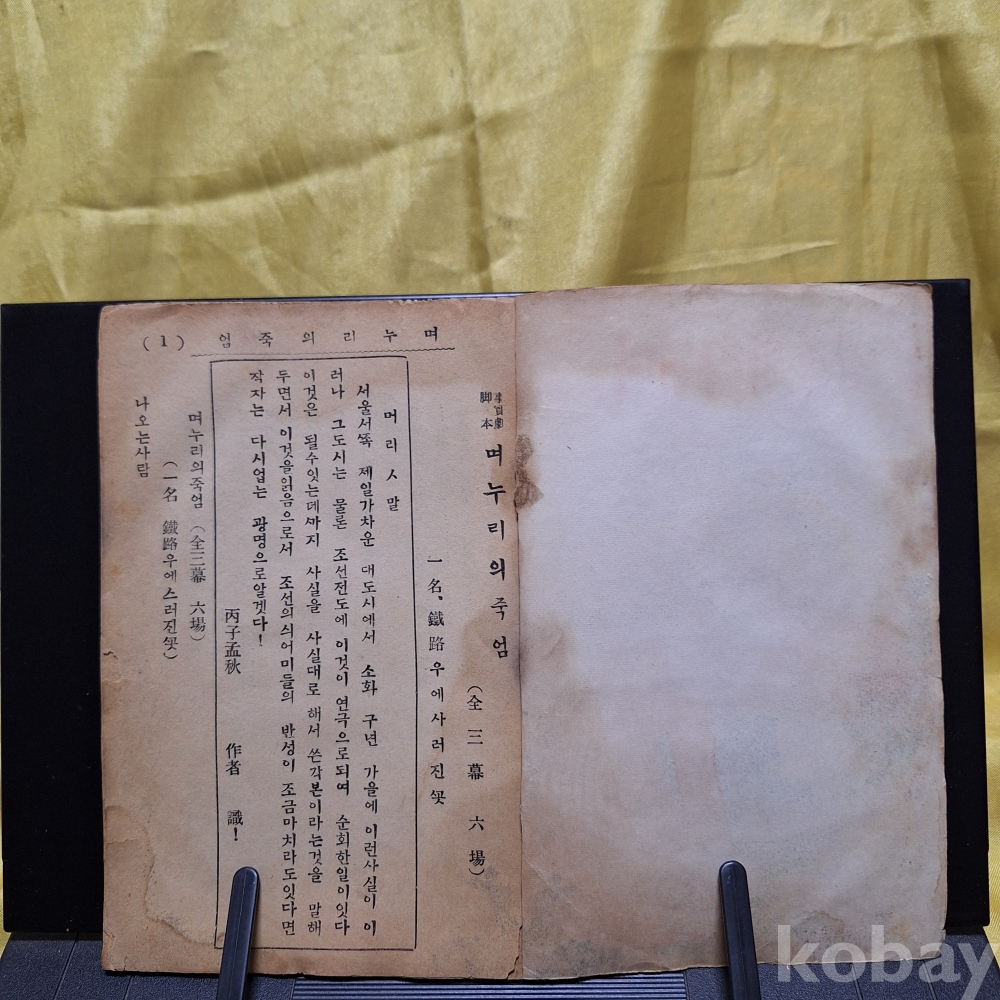 (1) 엄죽의리누며
脚本 며누리의죽엄
(全三幕 六場)
一名、鐵路우에사러진꼿
머리ㅅ말
서울서쪽 제일가차운 대도시에서 소화 구년 가을에 이런사실이 이
러나 그도시는 물론 조선전도에 이것이 연극으로되여 순회한일이잇다
이것은 될수잇는데까지 사실을 사실대로 해서 쓴각본이라는것을 말해
두면서 이것을읽음으로서 조선의싀어미들의 반성이 조금마치라도잇다면
작자는 다시업는 광명으로알겟다!
丙子孟秋 作者 識!
며누리의죽엄 (全三幕 六場)
(一名 鐵路우에스러진꼿)
나오는사람
kobay